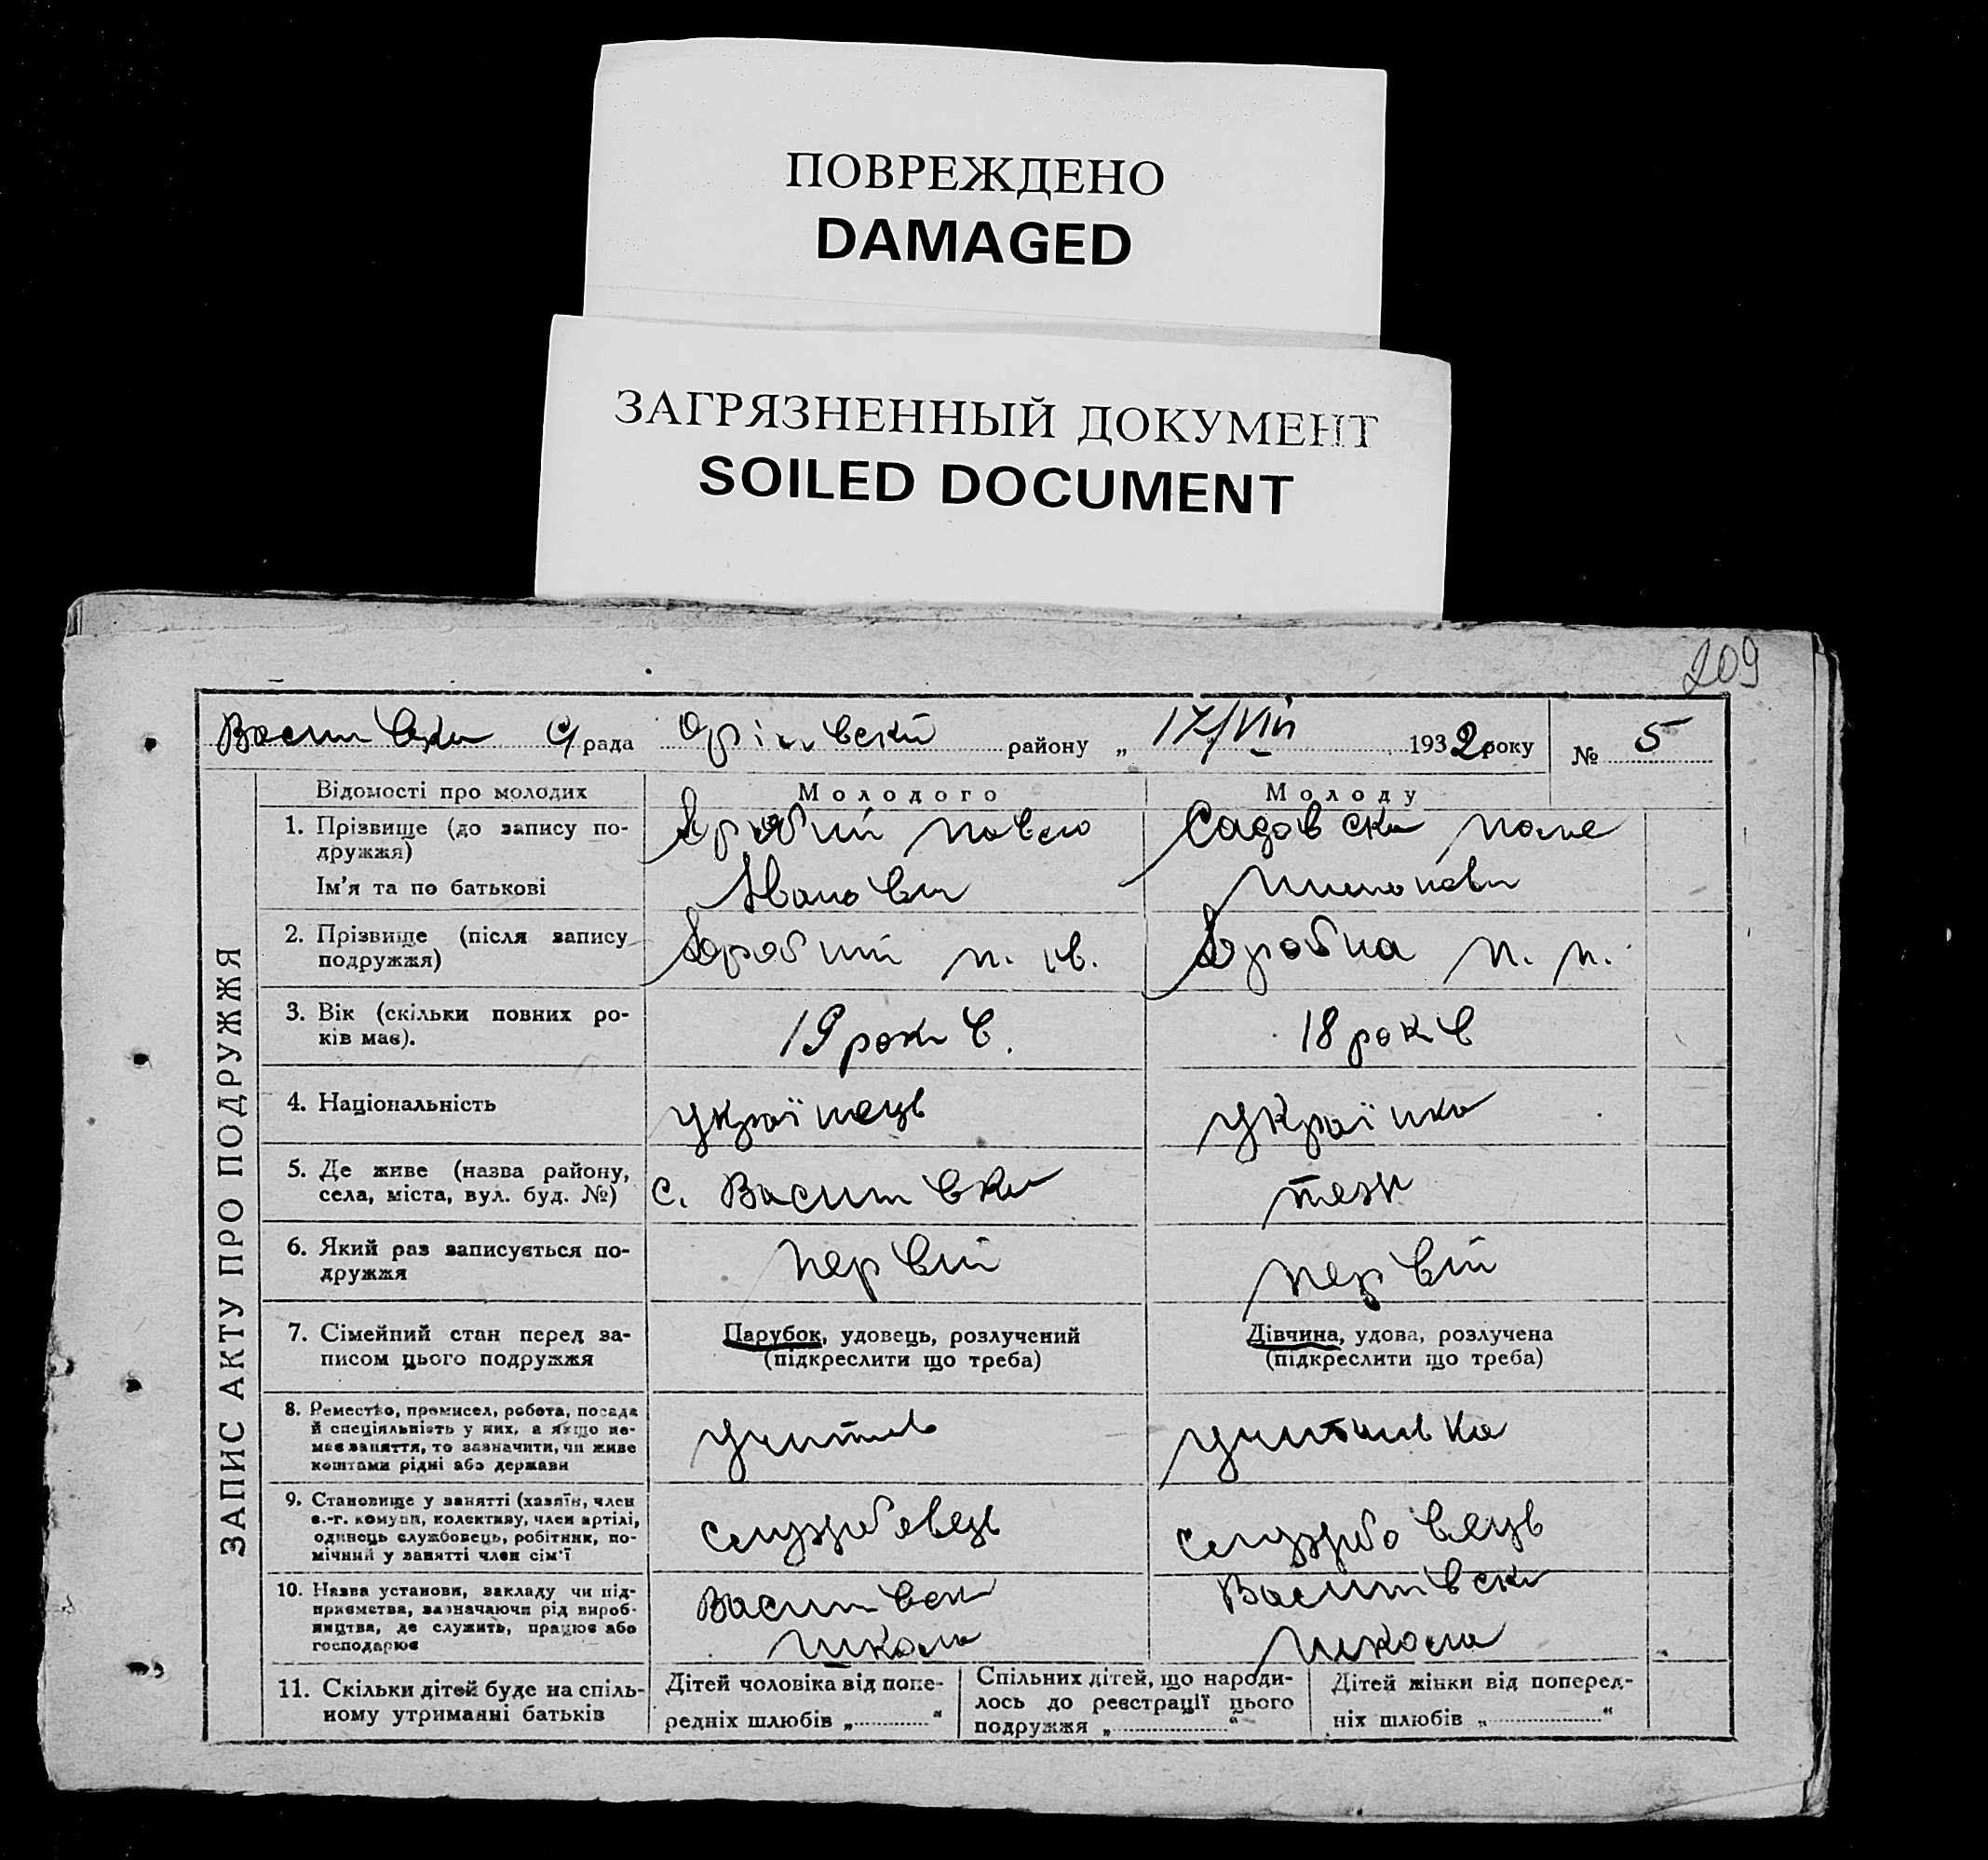 ПОВРЕЖДЕНО
DAMAGED
ЗАГРЯЗНЕННЫЙ ДОКУМЕНТ
SOILED DOCUMENT
209
с/рада району „ 17/VIII 1932 року № 5
ЗАПИС АКТУ ПРО ПОДРУЖЖЯ
Відомості про молодих Молодого Молоду
1. Прізвище (до запису по-
дружжя)
Садовска
Ім'я та по батькові
Іванович
2. Прізвище (після запису
подружжя)
Дробний п. ів. Дробна п. п.
3. Вік (скільки повних ро-
ків має).
19 років. 18 років
4. Національність
українець українка
5. Де живе (назва району,
села, міста, вул. буд. №)
с. теж
6. Який раз записується по-
дружжя
первий первий
7. Сімейний стан перед за-
писом цього подружжя
Парубок, удовець, розлучений
(підкреслити що треба)
Дівчина, удова, розлучена
(підкреслити що треба)
8. Ремество, промисел, робота, посада
й спеціяльність у них, а якщо не-
має заняття, то зазначити, чи живе
коштами рідні або держави
учитель учителька
9. Становище у занятті (хазяїн, член
с.-г. комуни, колективу, член артілі,
одинець службовець, робітник, по-
мічний у занятті член сім'ї
службовець службовець
10. Назва установи, закладу чи під-
приємства, зазначаючи рід вироб-
ництва, де служить, працює або
господарює
школа школа
11. Скільки дітей буде на спіль-
ному утриманні батьків
Дітей чоловіка від попе-
редніх шлюбів „ “
Спільних дітей, що народи-
лось до реєстрації цього
подружжя „ “
Дітей жінки від поперед-
ніх шлюбів „ “